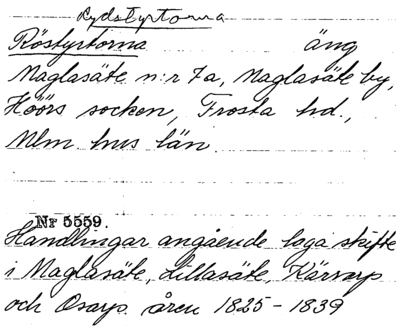 Rydstyrtorna
Röstyrtorna äng
Maglasäte n:r 7a, Maglasäte by,
Höörs socken, Frosta hd.,
Mlm hus län
Nr 5559.
Handlingar angående laga skifte
i Maglasäte, Lillasäte, Kärrarp
och Osarp åren 1825-1839